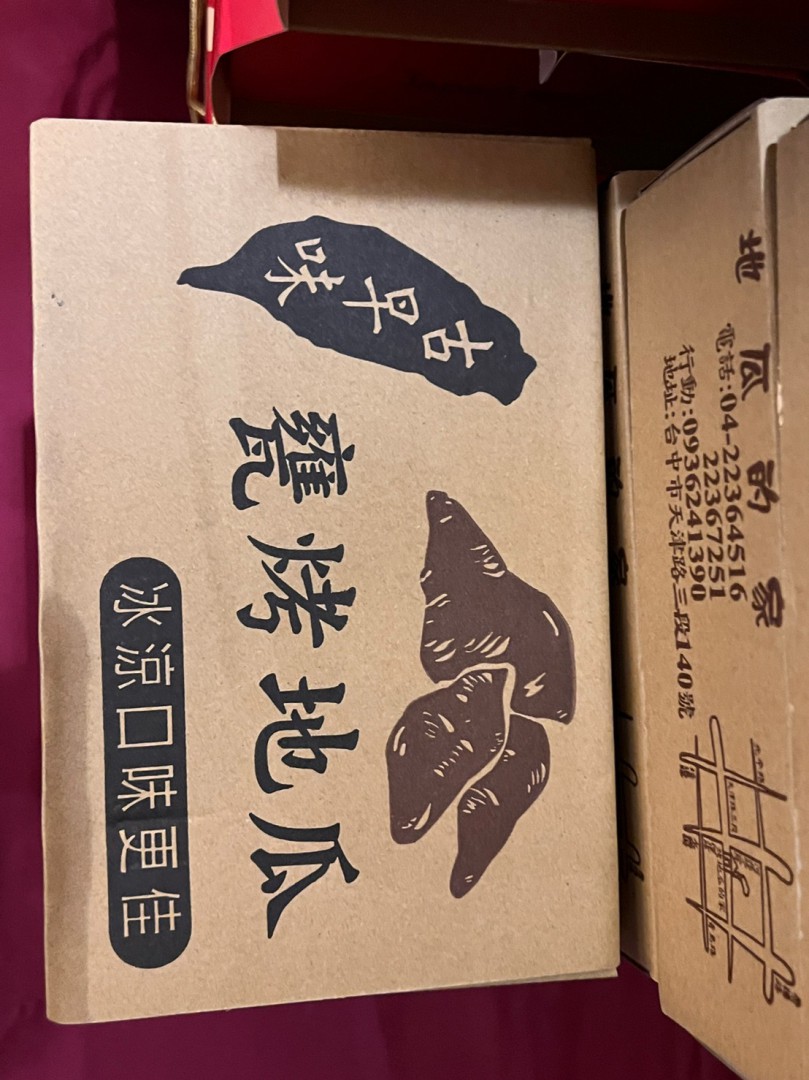 古早味
甕烤地瓜
冰涼口味更佳
地瓜的家
電話:04-22364516
22367251
行動:0936241390
地址:台中市天津路三段140號